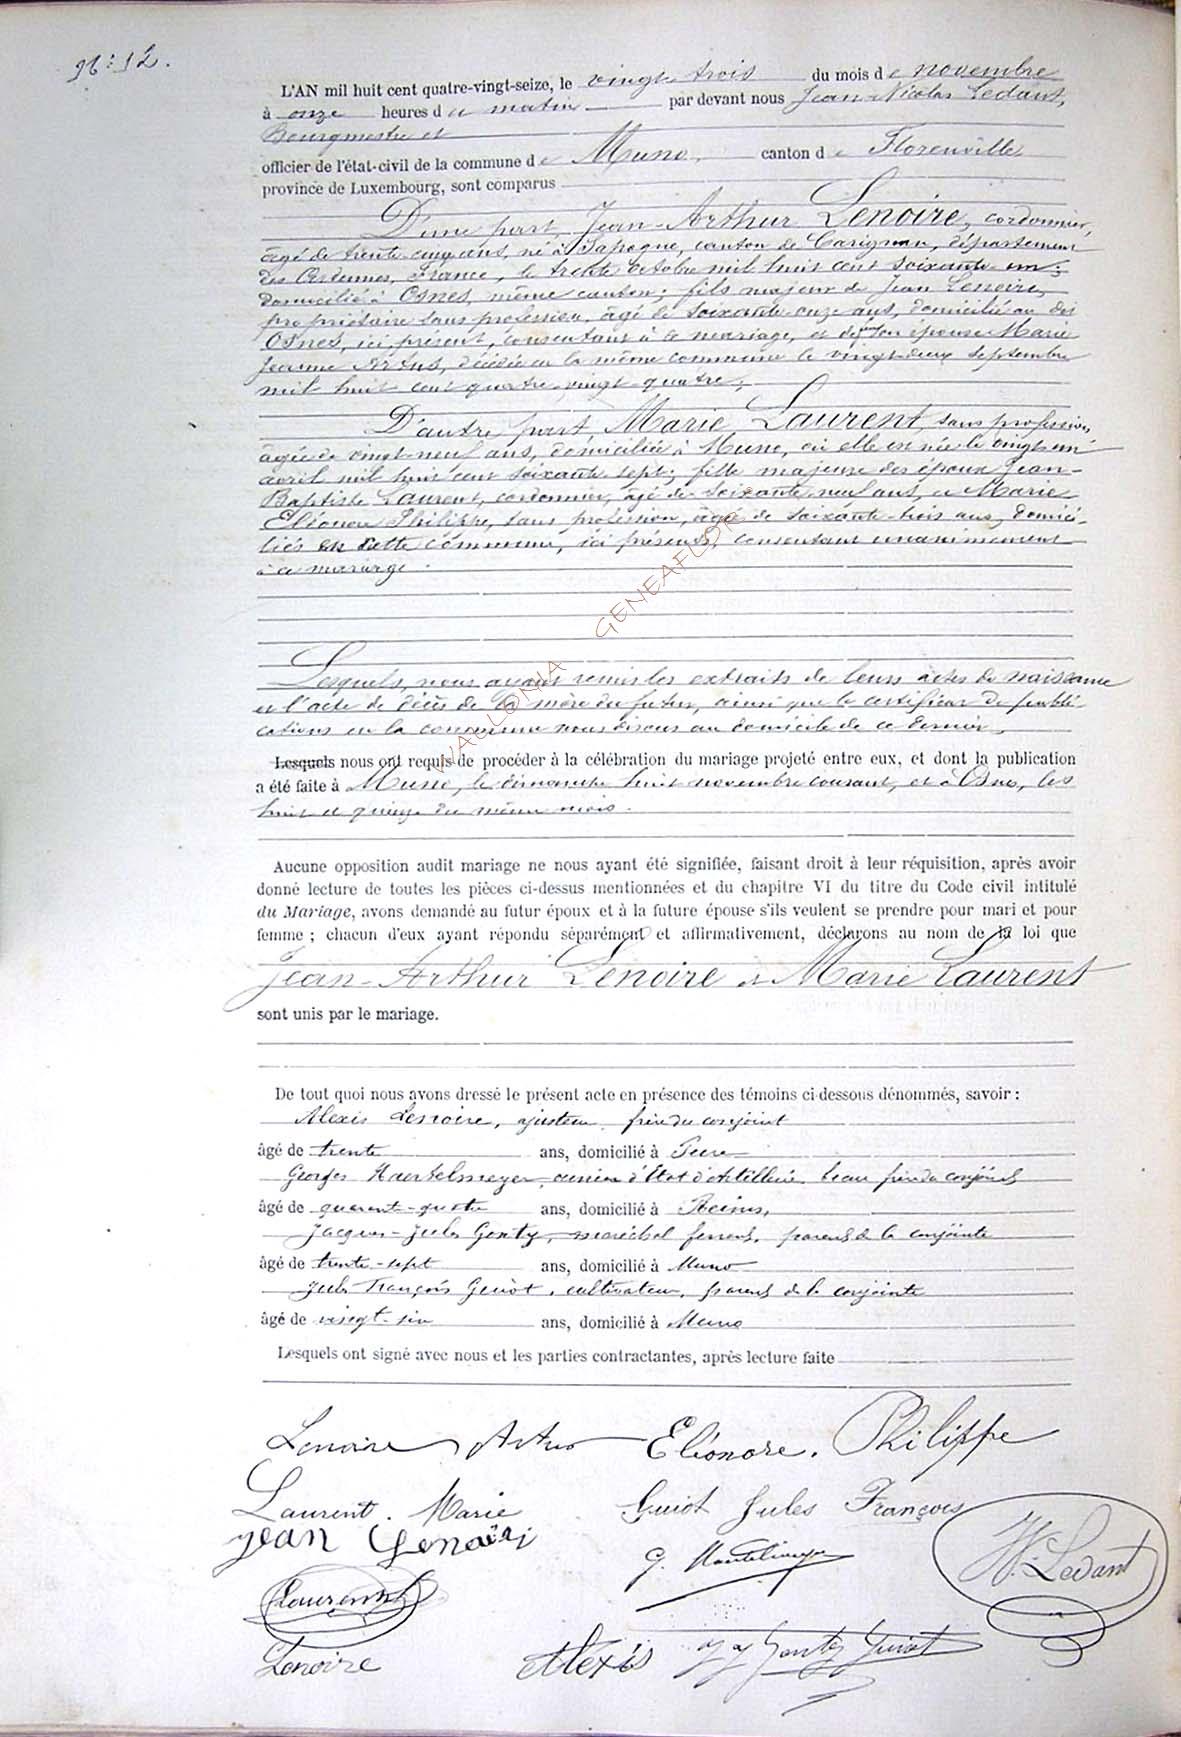 96:12.
L'AN mil huit cent quatre-vingt-seize, le vingt trois du mois de novembre
à onze heures du matin par devant nous Jean-Nicolas Ledant,
Bourgmestre et
officier de l'état-civil de la commune de Muno, canton de Florenville
province de Luxembourg, sont comparus
D'une part, Jean-Arthur Lenoire, cordonnier,
âgé de trente-cinq ans, né à Sapogne, canton de Carignan, département
des Ardennes, France, le trente octobre mil huit cent soixante-un;
domicilié à Osnes, même canton; fils majeur de Jean Lenoire,
propriétaire sans profession, âgé de soixante onze ans, domicilié au dit
Osnes, ici présent, consentant à ce mariage, et de son épouse Marie
Jeanne Artus, décédée en la même commune le vingt-deux septembre
mil huit cent quatre-vingt-quatre;
D'autre part Marie Laurent, sans profession,
âgée de vingt-neuf ans, domiciliée à Muno, où elle est née le vingt-un
avril mil huit cent soixante-sept; fille majeure des époux Jean-
Baptiste Laurent, cordonnier, âgé de soixante-neuf ans, et Marie
Eléonore Philippe, sans profession, âgée de soixante-trois ans, domici-
liés en cette commune, ici présents, consentant unanimement
à ce mariage.
Lesquels, nous ayant remis les extraits de leurs actes de naissance
et l'acte de décès de la mère du futur, ainsi que le certificat de publi-
cations en la commune nous disons au domicile de ce dernier,
Lesquels nous ont requis de procéder à la célébration du mariage projeté entre eux, et dont la publication
a été faite à Muno, le dimanche huit novembre courant, et à Osnes, les
huit et quinze du même mois.
Aucune opposition audit mariage ne nous ayant été signifiée, faisant droit à leur réquisition, après avoir
donné lecture de toutes les pièces ci-dessus mentionnées et du chapitre VI du titre du Code civil intitulé
du Mariage, avons demandé au futur époux et à la future épouse s'ils veulent se prendre pour mari et pour
femme ; chacun d'eux ayant répondu séparément et affirmativement, déclarons au nom de la loi que
Jean-Arthur Lenoire et Marie Laurent
sont unis par le mariage.
De tout quoi nous avons dressé le présent acte en présence des témoins ci-dessous dénommés, savoir :
Alexis Lenoire, ajusteur, frère du conjoint
âgé de trente ans, domicilié à
Georges d'Etat d'Artillerie, beau frère du conjoint
âgé de quarant-quatre ans, domicilié à Reims,
Jacques-Jules Gonty, maréchal ferrant, parent de la conjointe
âgé de trente-sept ans, domicilié à Muno
Jules François Guiot, cultivateur, parent de la conjointe
âgé de vingt-six ans, domicilié à Muno
Lesquels ont signé avec nous et les parties contractantes, après lecture faite
Lenoire Artus Eléonore. Philippe
Laurent. Marie Guiot Jules François
Jean Lenoire
G. N. Ledant
Laurent
Lenoire Alexis JJ Gonty Guiot
WALLONIA GENEAFLOR